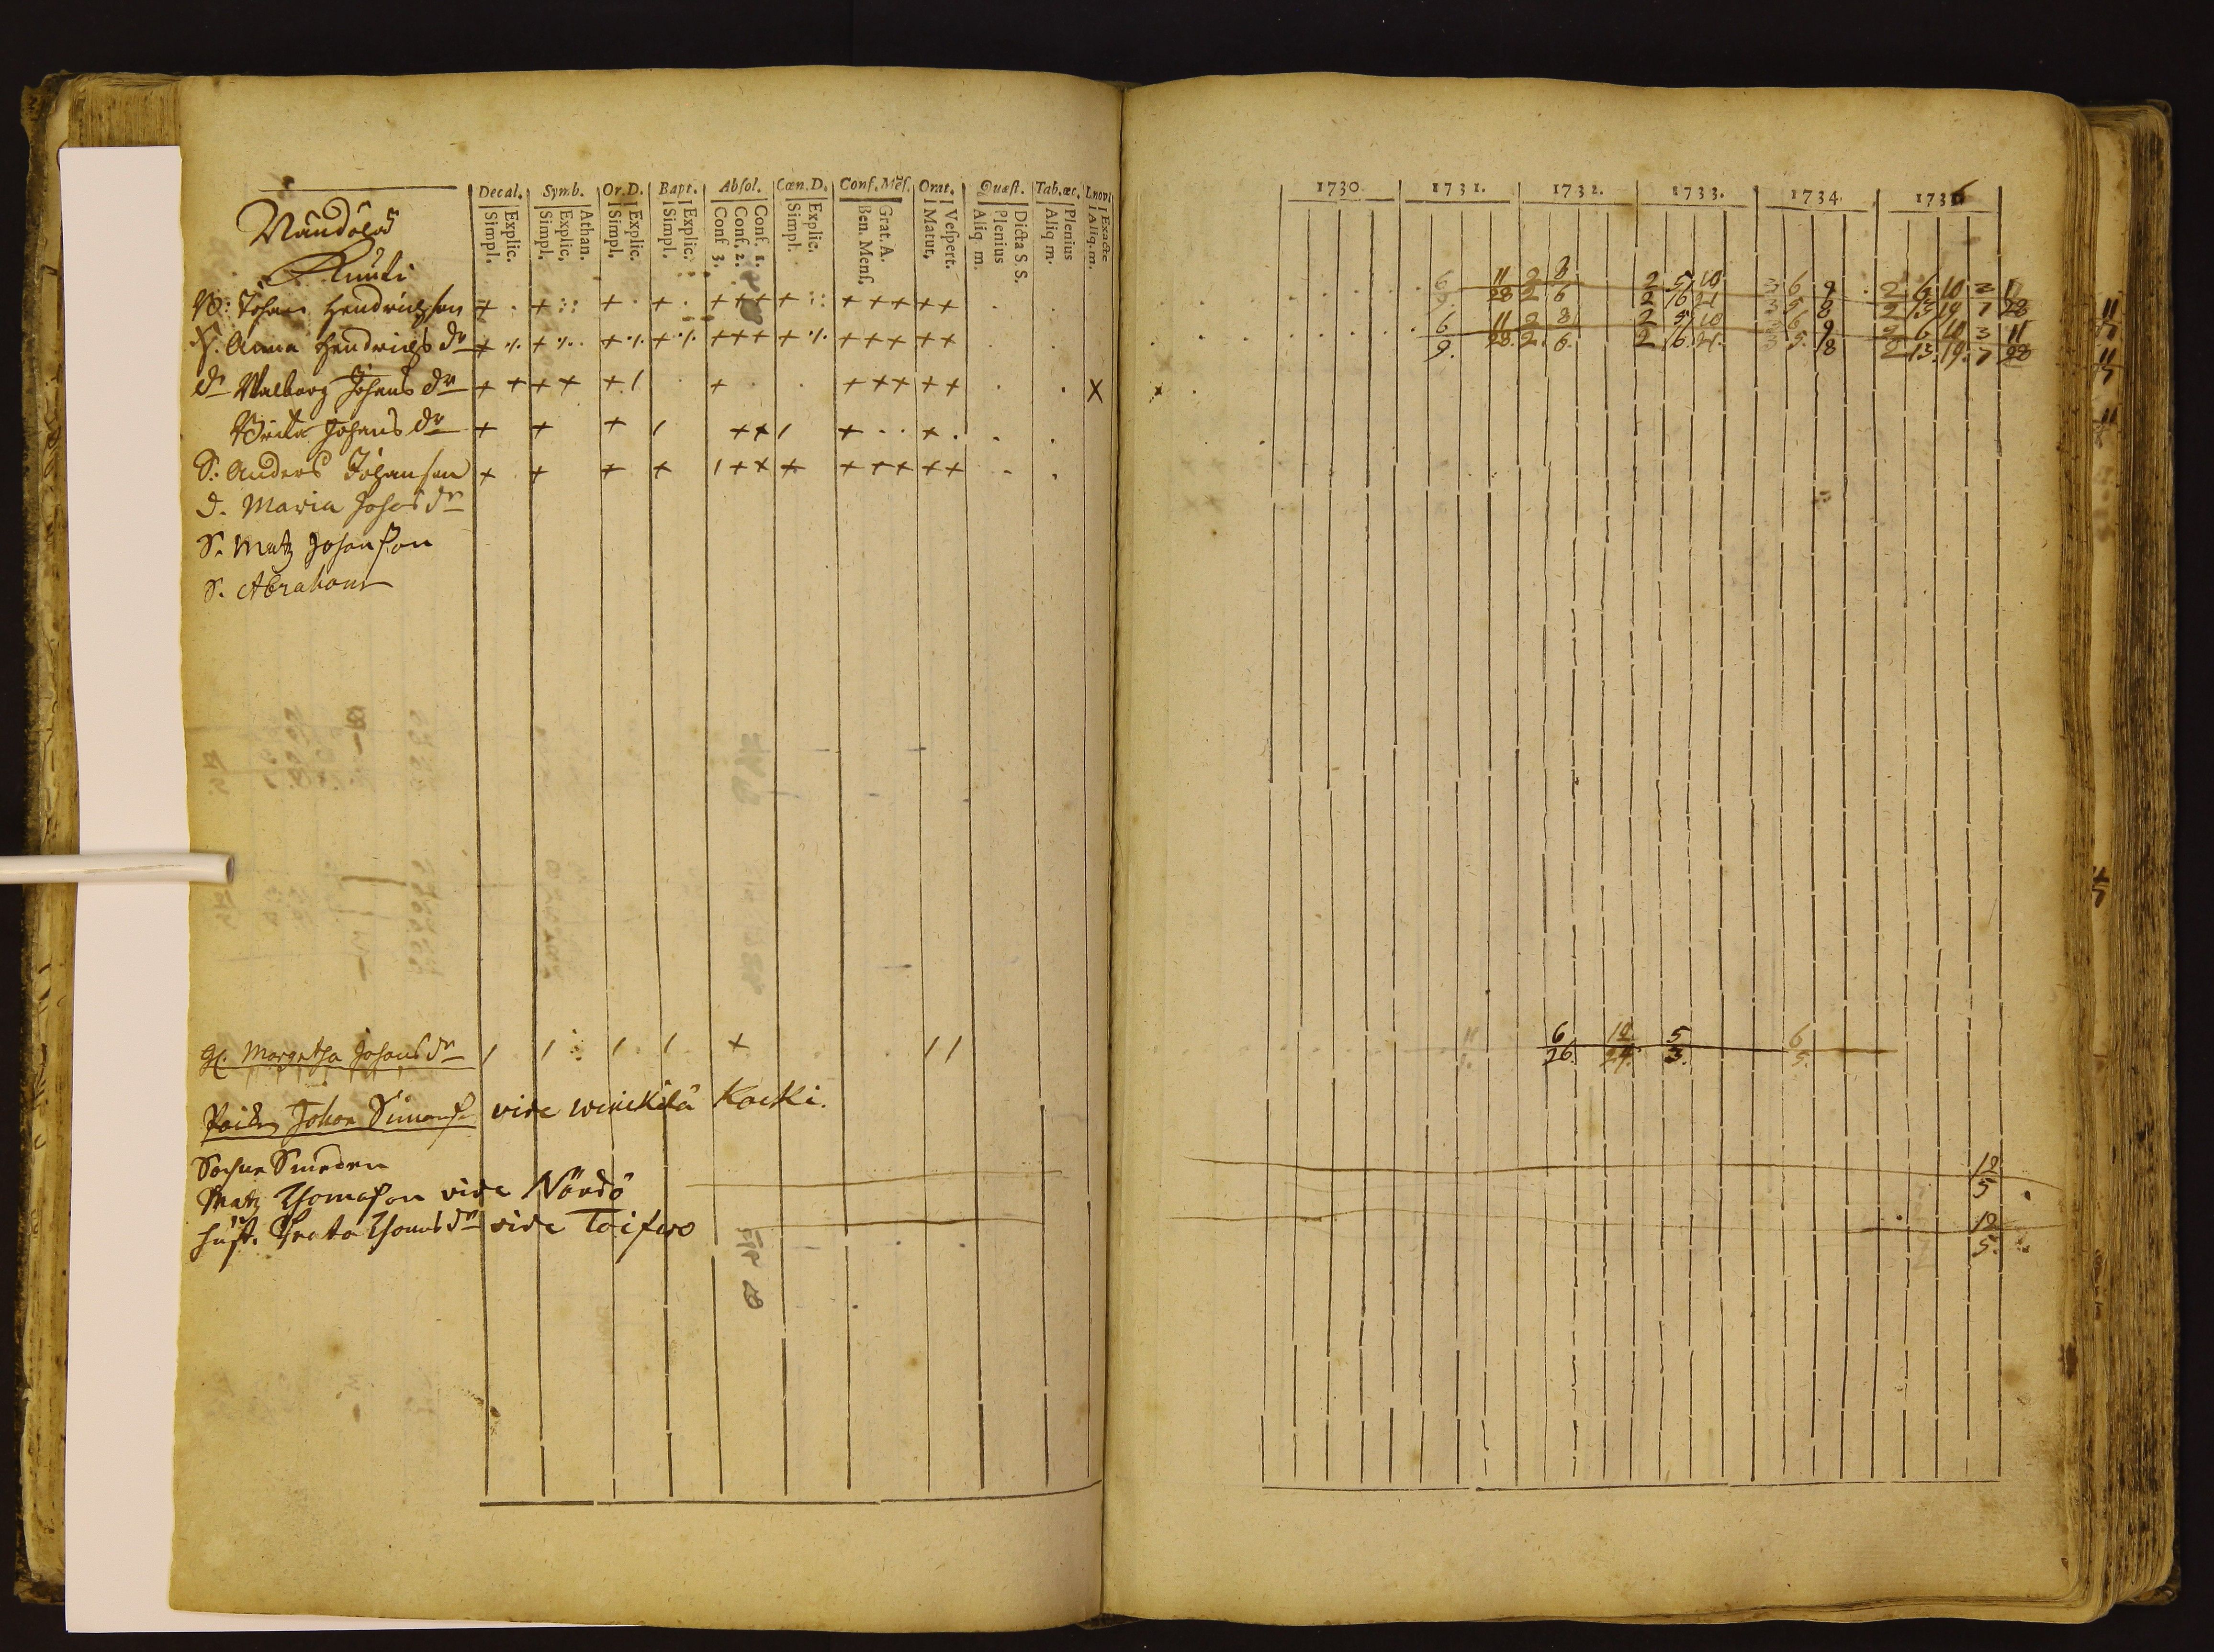 Decal. Symb. Or. D. Bapt. Absol. Cœn. D. Conf. Mẽſ. Orat. Quæſt. Tab. œc. Lnovi
Simpl. Explic. Simpl. Explic. Athan. Simpl. Explic. Simpl. Explic. Conf 3. Conf. 2. Conf. 1. Simpl. Explic. Ben. Menſ. Grat. A. Matut. Veſpert. Aliq m. Plenius Dicta S. S. Aliq m. Plenius Aliq. m. Exacte
Knuti
B: Johan Hendrichſson + + + + +++ + +++ ++
H. Anna Hendrichs dr + ./. + ./. + ./. + ./. +++ + ./. +++ ++
dr Walborg Johans dr + + + + + / + +++ ++ X
Brita Johans dr + + + / ++ / + +
S. Anders Johanſson + + + + /++ + +++ ++
d. Maria Johans dr
S. Matz Johanſson
S. Abraham
H. Margetha Johans dr / / / / + //
Johan Simonſs vide Kaski.
Sochne Smeden
Matz Thomaſson vide Nördö
huſt. Beata Thoms dr vide Taifwo
1730 1731. 1732. 1733. 1734. 1736
6 11 2 8 2 5 10 3 6 9 2 6 10 3 11
9 28 2 6 2 16 21 3 5 8 2 13 19 7 28
6 11 2 8 2 5 10 3 6 9 2 6 10 3 11
9. 28. 2. 6. 2 16. 21. 3 5. 18 2 13. 19. 7 28
6 12 5 6
26. 24. 3. 5.
12
5
12
5.